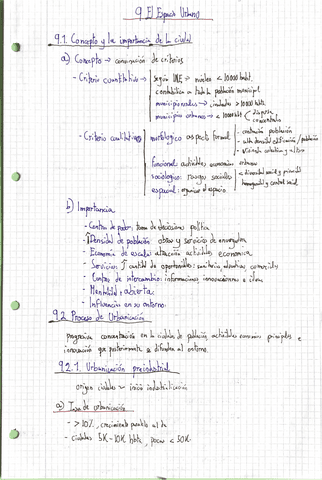 9. El Espacio Urbano
9.1. Concepto y la importancia de la ciudad
a) Concepto → combinación de criterios
- Criterio cuantitativo → según INE → núcleo < 10000 habit.
contabiliza a toda la población municipal
municipios rurales → ciudades > 10000 habts.
municipios urbanos → < 10000 habts
- Criterio cualitativo → morfológico aspecto formal
alta densidad edificación / población
vivienda colectiva y altura
funcional: actividades económicas urbanas
sociológico: rasgos sociales
especial: organizar el espacio
b) Importancia
- Centro de poder, toma de decisiones política
- ↑ Densidad de población obras y servicios de envergadura
- Economía de escala: atracción actividades económica
- Servicios ↑ cantidad de oportunidades: sanitario, educativo, comerciales
- Centro de intercambios: informaciones innovaciones e ideas
- Mentalidad + abierta
- Influencia en su entorno.
9.2. Proceso de Urbanización
progresiva concentración en la ciudades de población, actividades económicas principales e
innovación que posteriormente se difunden al entorno.
9.2.1. Urbanización preindustrial
origen ciudades ~ inicio industrialización
a) Tasa de urbanización
- > 10%, crecimiento
- ciudades 5K - 10K habts, pocas < 50K.